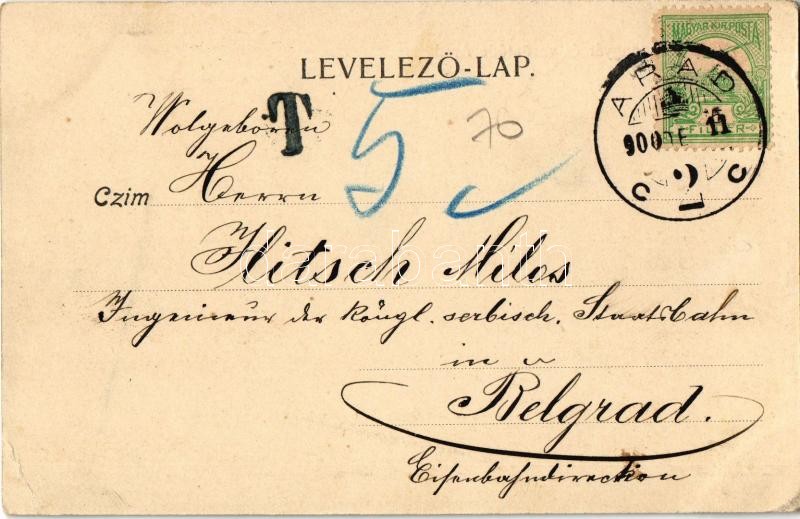 MAGYAR KIR. POSTA
LEVELEZŐ-LAP.
ARAD
900 11
2
T
5
70
Wolgeboren
Czim Herrn
Ilitsch Milos
Ingenieur der köngl. serbisch. Staatsbahn
in
Belgrad.
Eisenbahndirection